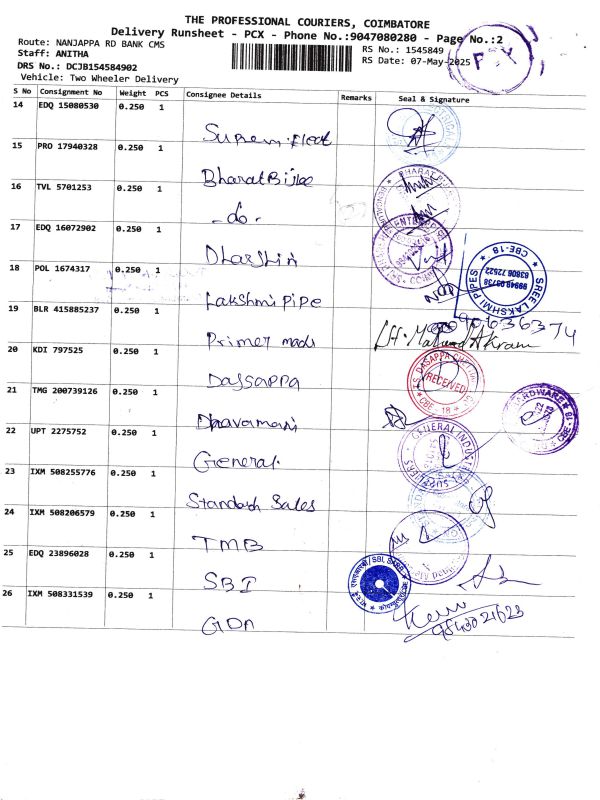 THE PROFESSIONAL COURIERS, COIMBATORE
Delivery Runsheet - PCX - Phone No.:9047080280 - Page No.:2
Route: NANJAPPA RD BANK CMS
RS No.: 1545849
Staff: ANITHA
RS Date: 07-May-2025
DRS No.: DCJB154584902
Vehicle: Two Wheeler Delivery
S No Consignment No Weight PCS Consignee Details Remarks Seal & Signature
14 EDQ 15080530 0.250 1
Suprem Elect
15 PRO 17940328 0.250 1
Bharat Bijlee
16 TVL 5701253 0.250 1
- do -
17 EDQ 16072902 0.250 1
Dharshin
18 POL 1674317 0.250 1
Lakshmi Pipe
SREE LAKSHMI PIPES
CBE-18
19 BLR 415885237 0.250 1
Primer made
20 KDI 797525 0.250 1
Dassappa
RECEIVED
CBE - 18
21 TMG 200739126 0.250 1
Dhavamani
HARDWARE
22 UPT 2275752 0.250 1
General
GENERAL INDUSTRIAL
23 IXM 508255776 0.250 1
Standard Sales
24 IXM 508206579 0.250 1
TMB
25 EDQ 23896028 0.250 1
SBI
26 IXM 508331539 0.250 1
GDA
9843021623